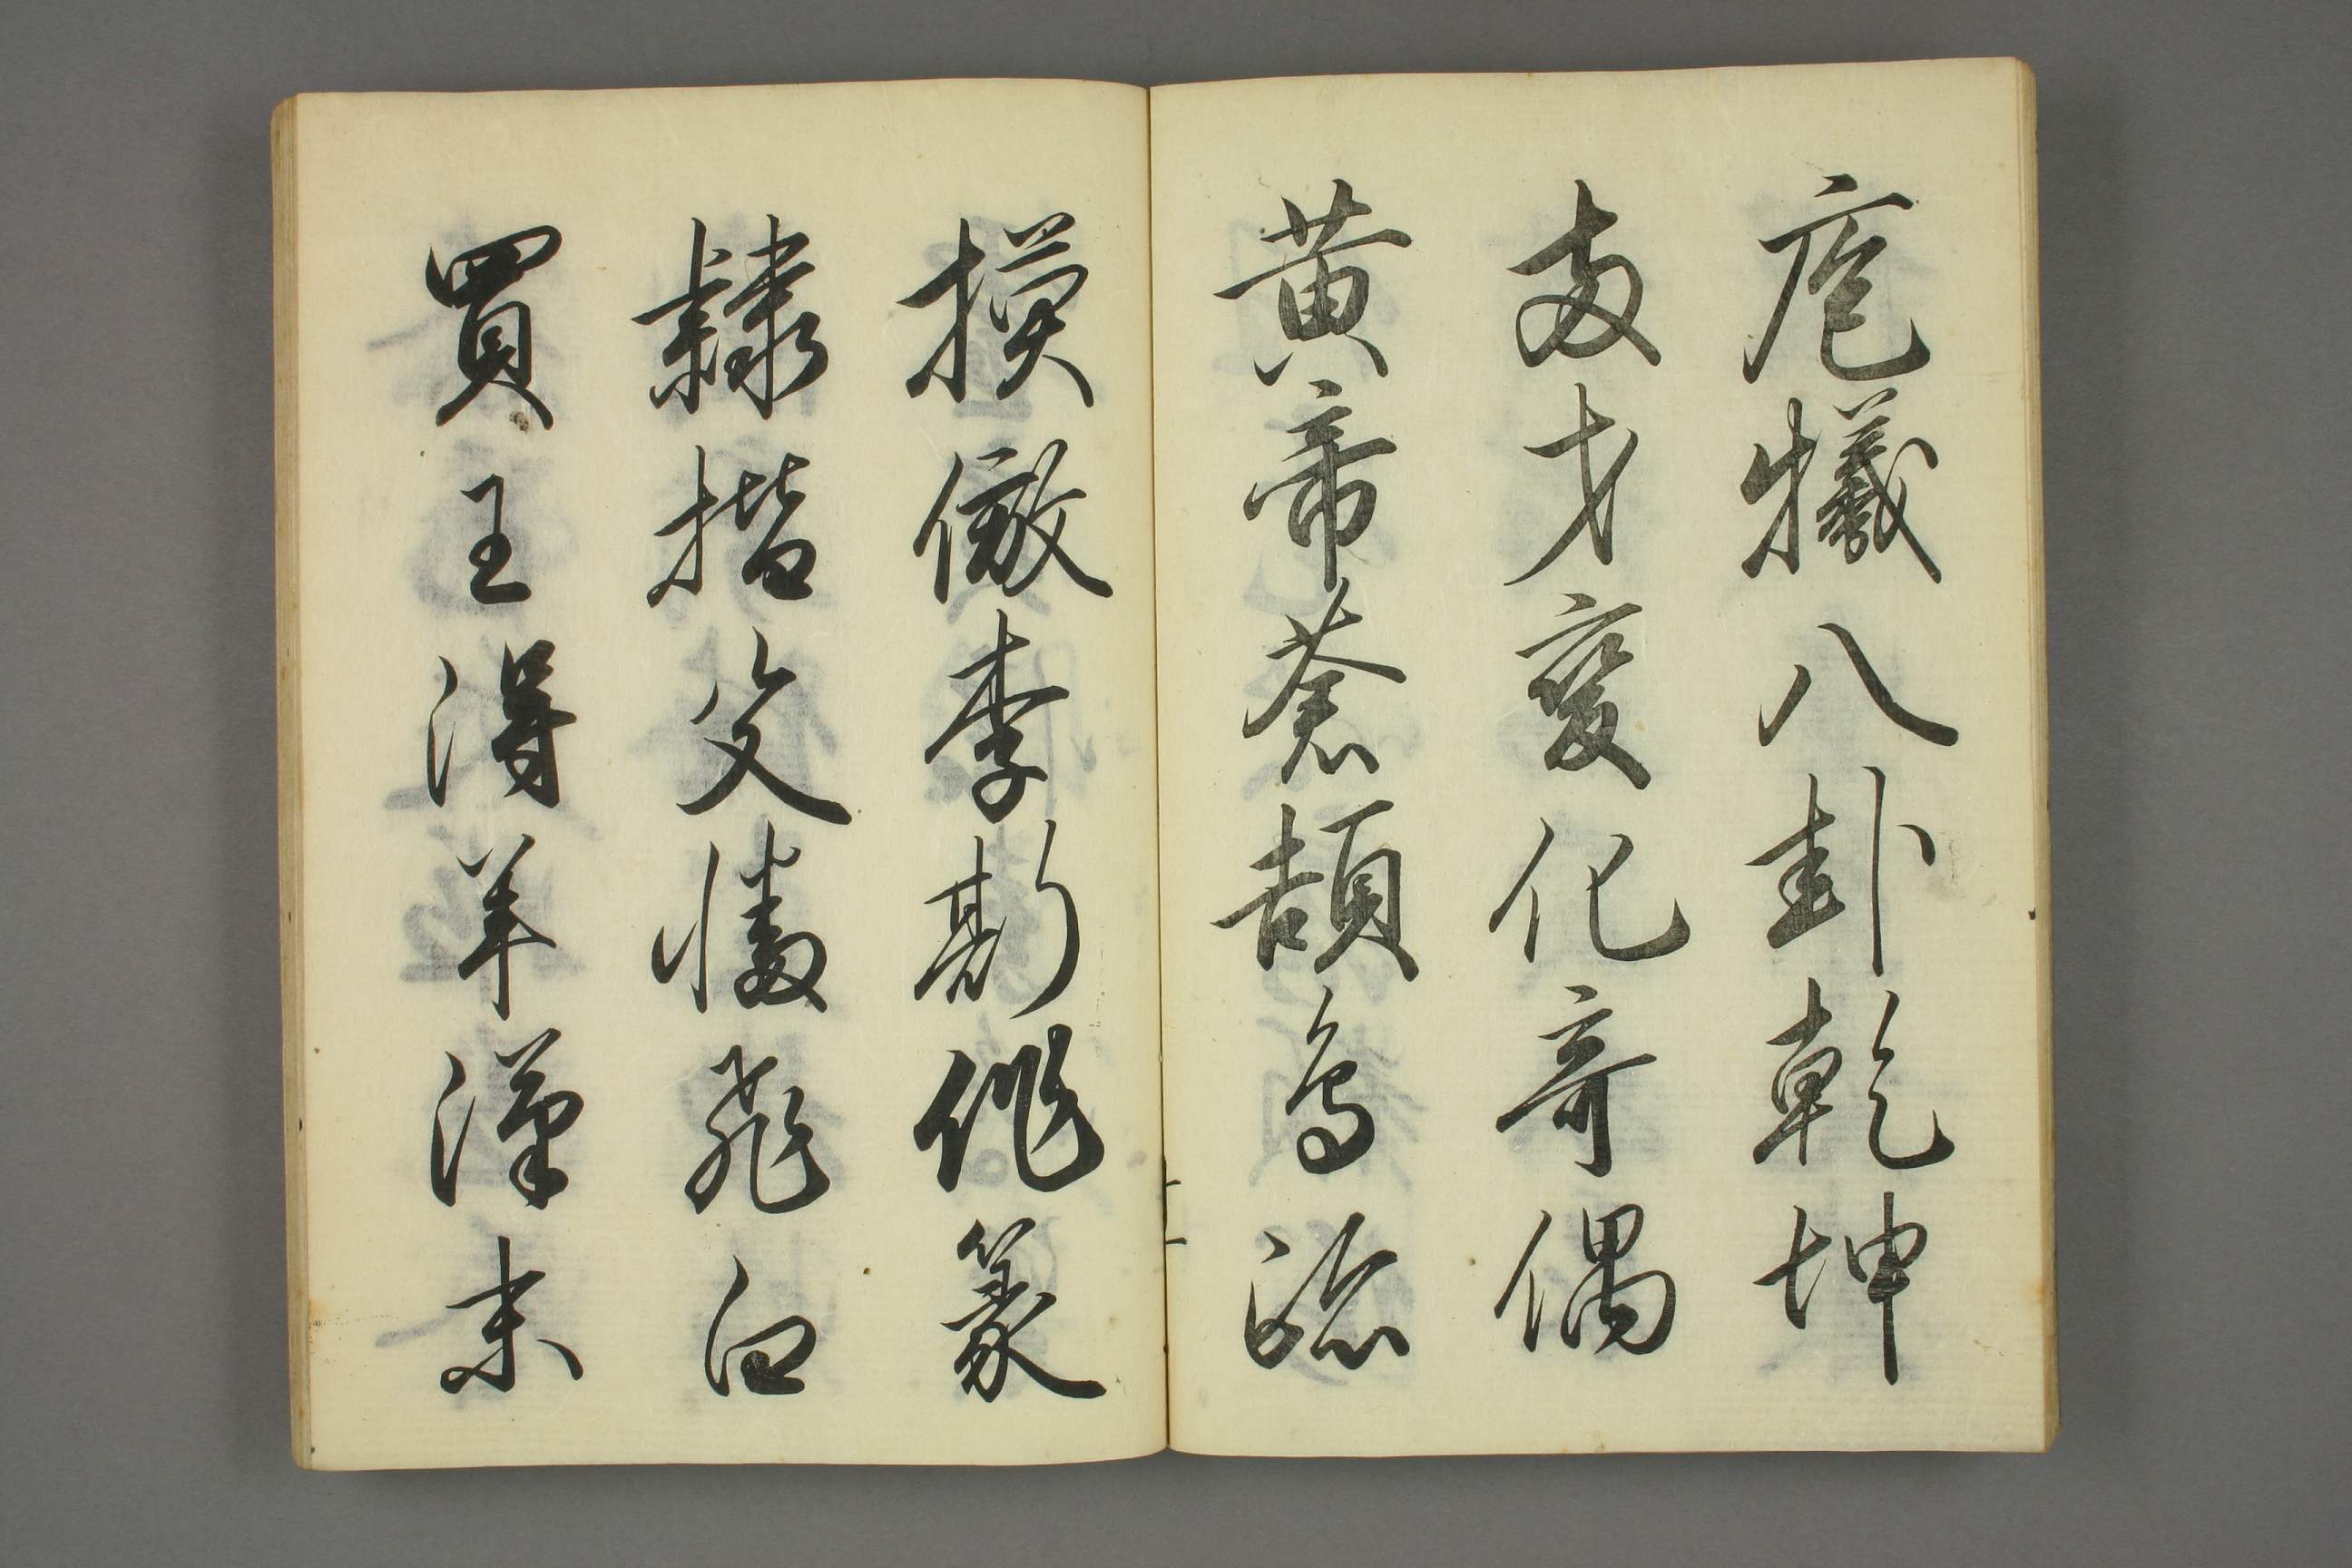 庖犧八卦乾坤
両才変化奇偶
黄帝蒼頡鳥跡
摸倣李斯作篆
隷楷父情飛白
買王得羊漢末